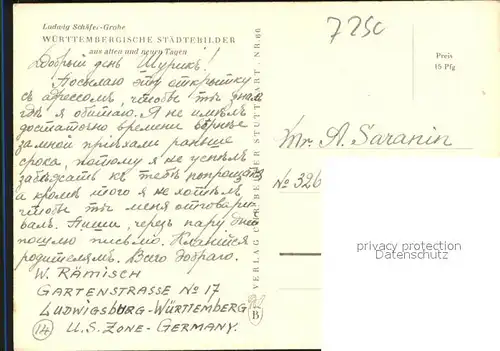 Ludwig Schäfer-Grohe
WÜRTTEMBERGISCHE STÄDTEBILDER
aus alten und neuen Tagen
7250
Preis
15 Pfg
Добрый день Шурик!
Посылаю эту открытку
съ адрессомъ, чтобы ты зналъ
гдѣ я обитаю. Я не имѣлъ
достаточно времени
за мной пріѣхали раньше
срока, потому я не успѣлъ
забѣжать къ тебѣ попрощаться
а кромѣ того я не хотѣлъ
чтобы ты меня отговари-
валъ. Пиши, черезъ пару дней
пошлю письмо. Кланяйся
родителямъ. Всего добраго.
W. RÄMISCH
GARTENSTRASSE No 17
LUDWIGSBURG-WÜRTTEMBERG
U.S. ZONE-GERMANY.
14
VERLAG STUTTGART. NR. 66
B
Mr. A. Saranin
No 326
privacy protection
AnsichtskartenCenter